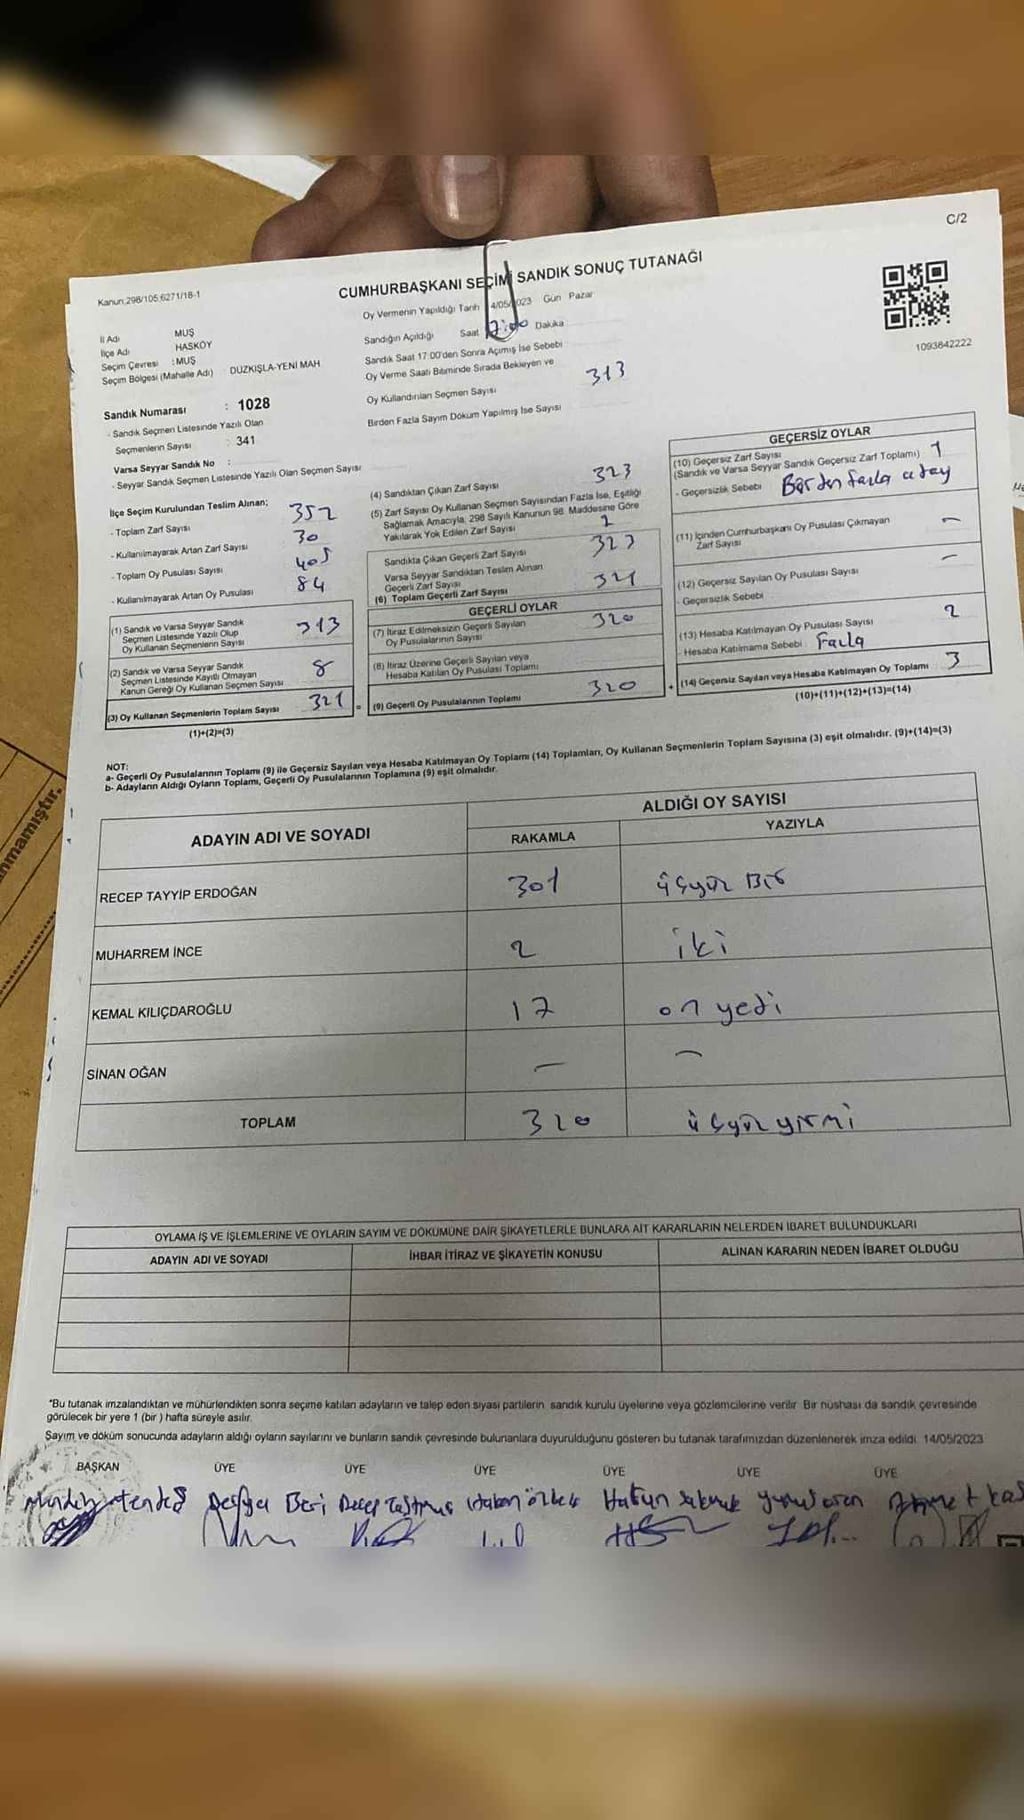 C/2
Kanun,298/105,6271/18-1
CUMHURBAŞKANI SEÇİMİ SANDIK SONUÇ TUTANAĞI
İl Adı MUŞ
İlçe Adı HASKÖY
Seçim Çevresi : MUŞ
Seçim Bölgesi (Mahalle Adı) DÜZKIŞLA-YENİ MAH
Oy Vermenin Yapıldığı Tarih 4/05/2023 Gün Pazar
Sandığın Açıldığı Saat Dakika
Sandık Saat 17:00'den Sonra Açımış İse Sebebi
Oy Verme Saati Bitiminde Sırada Bekleyen ve
Oy Kullandırılan Seçmen Sayısı 313
Birden Fazla Sayım Döküm Yapılmış İse Sayısı
1093842222
Sandık Numarası : 1028
- Sandık Seçmen Listesinde Yazılı Olan
Seçmenlerin Sayısı : 341
Varsa Seyyar Sandık No :
- Seyyar Sandık Seçmen Listesinde Yazılı Olan Seçmen Sayısı
İlçe Seçim Kurulundan Teslim Alınan;
- Toplam Zarf Sayısı 352
- Kullanılmayarak Artan Zarf Sayısı 30
- Toplam Oy Pusulası Sayısı 405
- Kullanılmayarak Artan Oy Pusulası 84
(1) Sandık ve Varsa Seyyar Sandık
Seçmen Listesinde Yazılı Olup
Oy Kullanan Seçmenlerin Sayısı 313
(2) Sandık ve Varsa Seyyar Sandık
Seçmen Listesinde Kayıtlı Olmayan
Kanun Gereği Oy Kullanan Seçmen Sayısı 8
(3) Oy Kullanan Seçmenlerin Toplam Sayısı 321
(1)+(2)=(3)
(4) Sandıktan Çıkan Zarf Sayısı 323
(5) Zarf Sayısı Oy Kullanan Seçmen Sayısından Fazla İse, Eşitliği
Sağlamak Amacıyla, 298 Sayılı Kanunun 98. Maddesine Göre
Yakılarak Yok Edilen Zarf Sayısı 2
Sandıkta Çıkan Geçerli Zarf Sayısı 323
Varsa Seyyar Sandıktan Teslim Alınan
Geçerli Zarf Sayısı
(6) Toplam Geçerli Zarf Sayısı 321
GEÇERLİ OYLAR
(7) İtiraz Edilmeksizin Geçerli Sayılan
Oy Pusulalarının Sayısı 320
(8) İtiraz Üzerine Geçerli Sayılan veya
Hesaba Katılan Oy Pusulası Toplamı
(9) Geçerli Oy Pusulalarının Toplamı 320
GEÇERSİZ OYLAR
(10) Geçersiz Zarf Sayısı
(Sandık ve Varsa Seyyar Sandık Geçersiz Zarf Toplamı) 1
- Geçersizlik Sebebi Birden fazla aday
(11) İçinden Cumhurbaşkanı Oy Pusulası Çıkmayan
Zarf Sayısı —
(12) Geçersiz Sayılan Oy Pusulası Sayısı —
- Geçersizlik Sebebi
(13) Hesaba Katılmayan Oy Pusulası Sayısı 2
- Hesaba Katılmama Sebebi Fazla
(14) Geçersiz Sayılan veya Hesaba Katılmayan Oy Toplamı 3
(10)+(11)+(12)+(13)=(14)
NOT:
a- Geçerli Oy Pusulalarının Toplamı (9) ile Geçersiz Sayılan veya Hesaba Katılmayan Oy Toplamı (14) Toplamları, Oy Kullanan Seçmenlerin Toplam Sayısına (3) eşit olmalıdır. (9)+(14)=(3)
b- Adayların Aldığı Oyların Toplamı, Geçerli Oy Pusulalarının Toplamına (9) eşit olmalıdır.
ADAYIN ADI VE SOYADI
ALDIĞI OY SAYISI
RAKAMLA YAZIYLA
RECEP TAYYİP ERDOĞAN 301 üçyüz Bir
MUHARREM İNCE 2 iki
KEMAL KILIÇDAROĞLU 17 on yedi
SİNAN OĞAN — —
TOPLAM 320 üçyüz yirmi
OYLAMA İŞ VE İŞLEMLERİNE VE OYLARIN SAYIM VE DÖKÜMÜNE DAİR ŞİKAYETLERLE BUNLARA AİT KARARLARIN NELERDEN İBARET BULUNDUKLARI
ADAYIN ADI VE SOYADI İHBAR İTİRAZ VE ŞİKAYETİN KONUSU ALINAN KARARIN NEDEN İBARET OLDUĞU
*Bu tutanak imzalandıktan ve mühürlendikten sonra seçime katılan adayların ve talep eden siyasi partilerin sandık kurulu üyelerine veya gözlemcilerine verilir. Bir nüshası da sandık çevresinde
görülecek bir yere 1 (bir) hafta süreyle asılır.
Sayım ve döküm sonucunda adayların aldığı oyların sayılarını ve bunların sandık çevresinde bulunanlara duyurulduğunu gösteren bu tutanak tarafımızdan düzenlenerek imza edildi. 14/05/2023
BAŞKAN ÜYE ÜYE ÜYE ÜYE ÜYE ÜYE
nmamıştır.